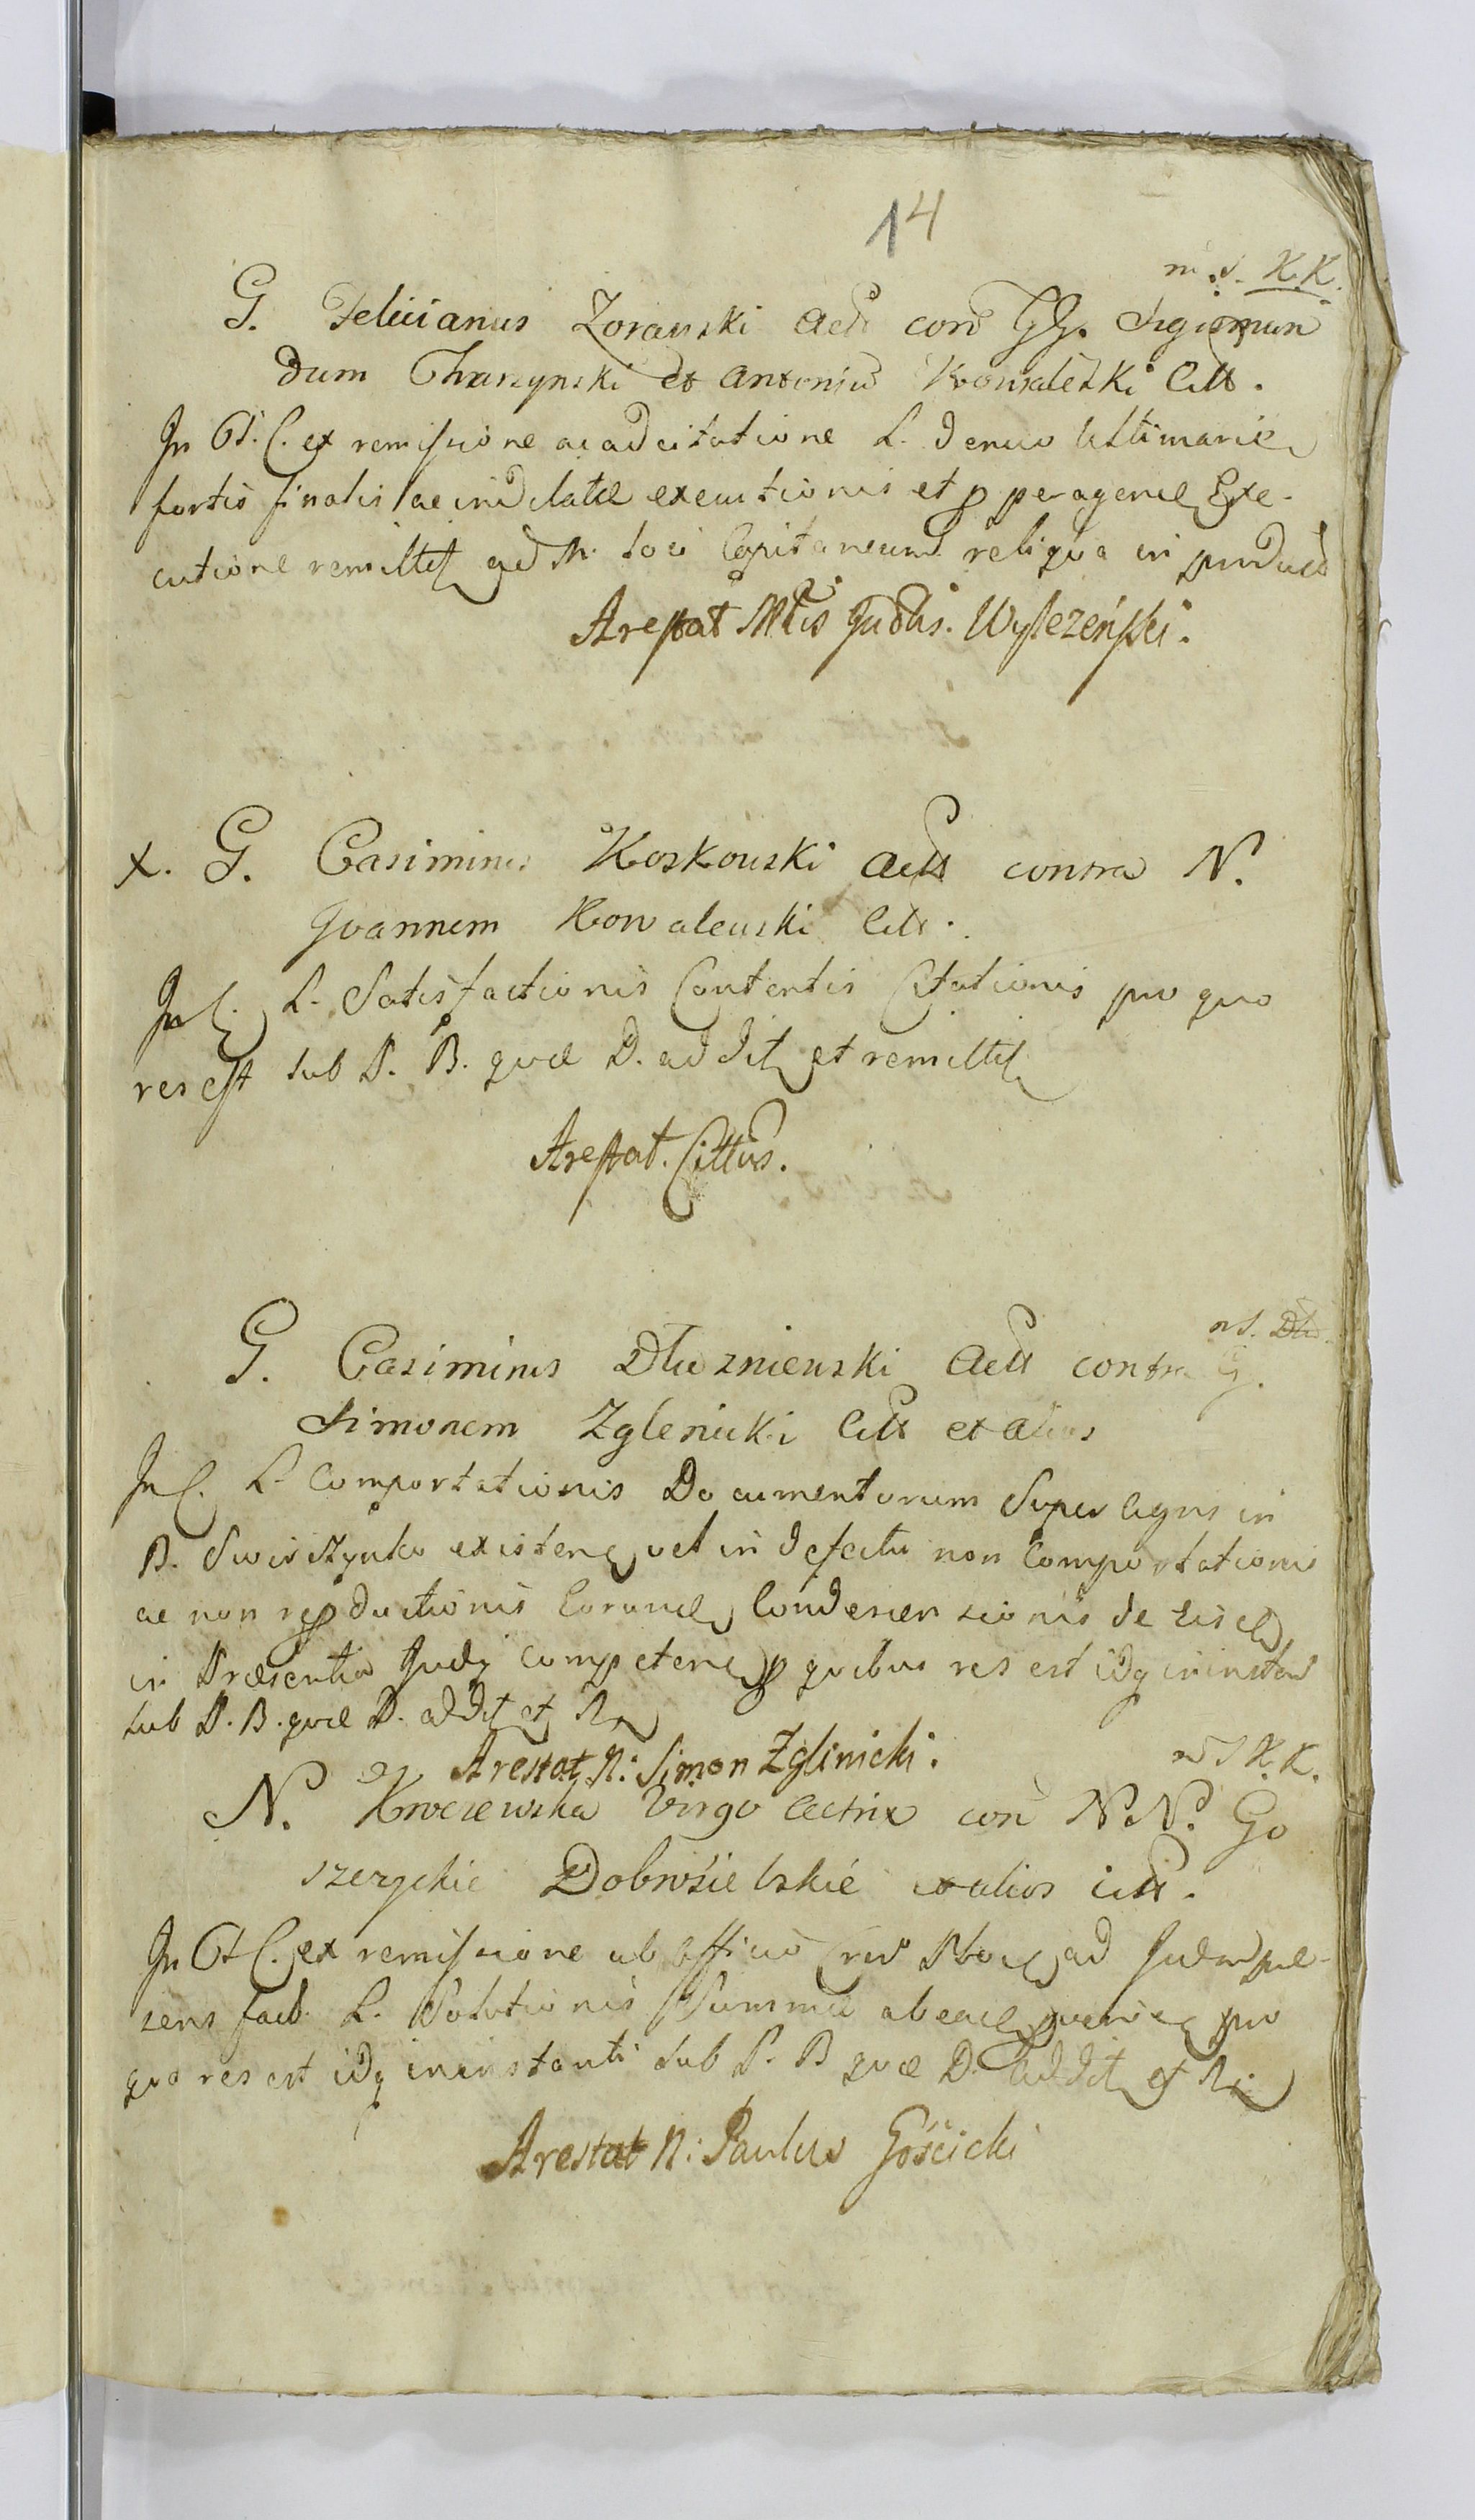 14
m. S. K.K.
G. Felicianus Zorawski Actt con GG. Sigismun
dum Tharzynski et Antoniu Kowalewski Citt.
In Ct. C. ex remissione ac adcitatione L. denuo Ultimarie
fortis finalis ac indilatae executionis et p peragenda Exe-
cutione remittit ad M. loci Capitaneum reliqua in product
Arestat Mtis Judlis. Wyleżeński.
x. G. Casimirus Koskowski Actt contra N.
Joannem Kowalewski Citt.
In C. L. Satisfactionis Contentis Citationis pro quo
res est sub P. B. quae D. addit et remittit
Arestat. Cittus.
nS. Dłu.
G. Casimirus Dłuzniewski Actt contra G.
Simonem Zglenicki Citt et alios
In C. L. Comportationis Documentorum Super agris in
B. Swieszynko existen vel in defectu non Comportationis
ac non reproductionis Corund Condescensionis de eisd
in Praesentia Judy competen p quibus res est idq ininstan
sub P. B. quae D. addit et R
Arestat N: Simon Zglinicki.
n S K. K.
N. Kroczewska Virgo Actrix con N.N. Go
szczyckie Dobrosielskie et alios Citt.
In Ct C. ex remissione ab Officio Cru Ploc ad Judm prae-
sens fact L. Solutionis Summae ab eac proven pro
qua res est idq ininstanti sub P. B quae D. addit et R
Arestat N: Paulus Gościcki